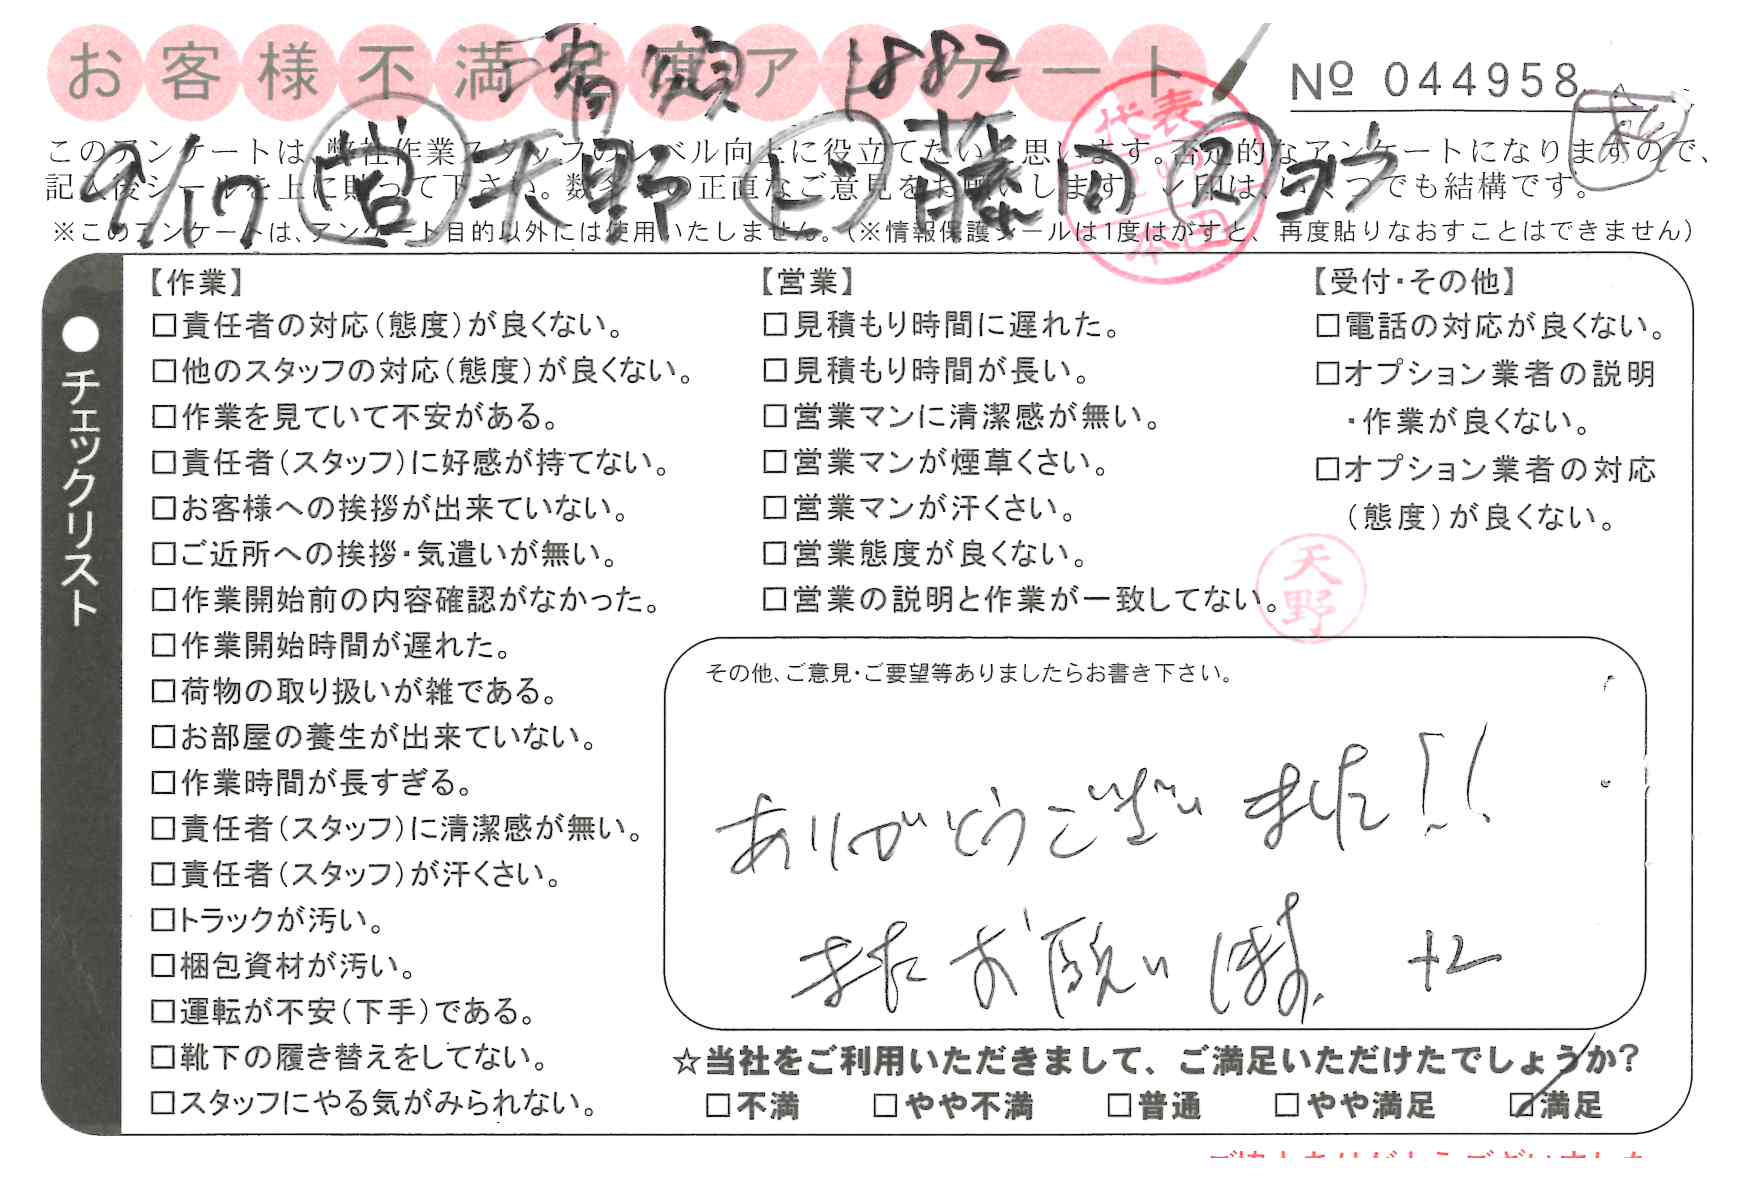 お客様不満足度アンケート
1882
№ 044958
このアンケートは、弊社作業スタッフのレベル向上に役立てたいと思います。否定的なアンケートになりますので、
記入後シールを上に貼って下さい。数多くの正直なご意見をお願いします。レ印は、いくつでも結構です。
9/17 営 天野 上 藤田 ヨウ
※このアンケートは、アンケート目的以外には使用いたしません。(※情報保護シールは1度はがすと、再度貼りなおすことはできません)
代表
●チェックリスト
【作業】
□責任者の対応(態度)が良くない。
□他のスタッフの対応(態度)が良くない。
□作業を見ていて不安がある。
□責任者(スタッフ)に好感が持てない。
□お客様への挨拶が出来ていない。
□ご近所への挨拶・気遣いが無い。
□作業開始前の内容確認がなかった。
□作業開始時間が遅れた。
□荷物の取り扱いが雑である。
□お部屋の養生が出来ていない。
□作業時間が長すぎる。
□責任者(スタッフ)に清潔感が無い。
□責任者(スタッフ)が汗くさい。
□トラックが汚い。
□梱包資材が汚い。
□運転が不安(下手)である。
□靴下の履き替えをしてない。
□スタッフにやる気がみられない。
【営業】
□見積もり時間に遅れた。
□見積もり時間が長い。
□営業マンに清潔感が無い。
□営業マンが煙草くさい。
□営業マンが汗くさい。
□営業態度が良くない。
□営業の説明と作業が一致してない。
【受付・その他】
□電話の対応が良くない。
□オプション業者の説明
・作業が良くない。
□オプション業者の対応
(態度)が良くない。
天野
その他、ご意見・ご要望等ありましたらお書き下さい。
ありがとうございました!!
またお願いします。
☆当社をご利用いただきまして、ご満足いただけたでしょうか?
□不満 □やや不満 □普通 □やや満足 ☑満足
ご協力ありがとうございました